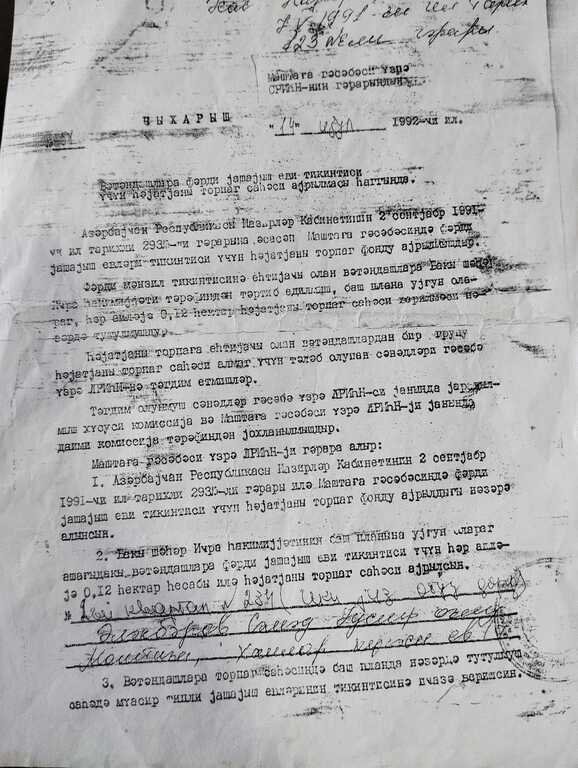 1991-
123 №ли гәрары
Маштаға гәсәбәси үзрә
нин гәрарындан
ЧЫХАРЫШ
"14" 1992-чи ил.
Вәтәндашлара фәрди јашајыш еви тикинтиси
үчүн һәјәтјаны торпаг саһәси ајрылмасы һаггында.
Азәрбајчан Республикасы Назирләр Кабинетинин 2 сентјабр 1991-
чи ил тарихли 293 -чи гәрарына әсасән Маштаға гәсәбәсиндә фәрди
јашајыш евләри тикинтиси үчүн һәјәтјаны торпаг фонду ајрылмышдыр.
Фәрди мәнзил тикинтисинә еһтијачы олан вәтәндашлара Бакы шәһәр
Ичра һакимијјәти тәрәфиндән тәртиб едилмиш, баш плана ујғун ола-
раг, һәр аиләјә 0,12 һектар һәјәтјаны торпаг саһәси верилмәси нә-
зәрдә тутулмушду.
Һәјәтјаны торпаға еһтијачы олан вәтәндашлардан бир групу
һәјәтјаны торпаг саһәси алмаг үчүн тәләб олунан сәнәдләри гәсәбә
үзрә нә тәгдим етмишләр.
Тәгдим олунмуш сәнәдләр гәсәбә үзрә си јанында јарадыл-
мыш хүсуси комиссија вә Маштаға гәсәбәси үзрә ји јанында
даими комиссија тәрәфиндән јохланылмышдыр.
Маштаға гәсәбәси үзрә ји гәрара алыр:
1. Азәрбајчан Республикасы Назирләр Кабинетинин 2 сентјабр
1991-чи ил тарихли 293 -чи гәрары илә Маштаға гәсәбәсиндә фәрди
јашајыш еви тикинтиси үчүн һәјәтјаны торпаг фонду ајрылдығы нәзәрә
алынсын.
2. Бакы шәһәр Ичра һакимијјәтинин баш планына ујғун олараг
ашағыдакы вәтәндашлара фәрди јашајыш еви тикинтиси үчүн һәр аилә-
јә 0,12 һектар һесабы илә һәјәтјаны торпаг саһәси ајрылсын.
№ квартал (ики јүз отуз
Сәмәд
3. Вәтәндашлара торпаг саһәсиндә баш планда нәзәрдә тутулмуш
саһәдә мүасир типли јашајыш евләринин тикинтисинә ичазә верилсин.